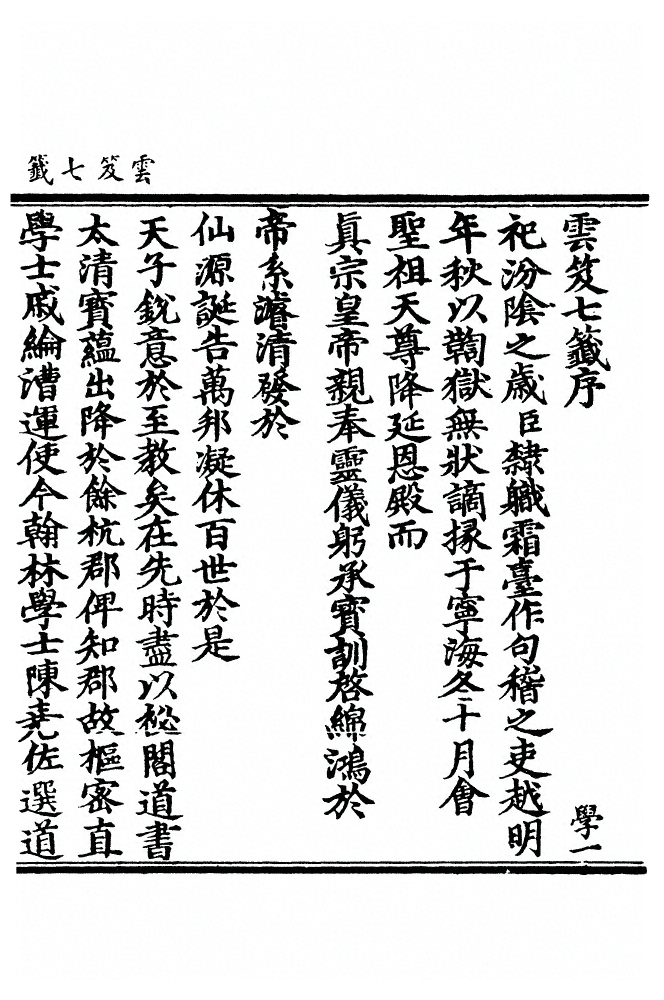 雲笈七籤
雲笈七籤序
學一
祀汾陰之歲臣隸職霜臺作句稽之吏越明
年秋以鞫獄無狀謫掾于寧海冬十月會
聖祖天尊降延恩殿而
真宗皇帝親奉靈儀躬承寶訓啓綿鴻於
帝系濬清發於
仙源誕告萬邦凝休百世於是
天子銳意於至教矣在先時盡以祕閣道書
太清寶蘊出降於餘杭郡俾知郡故樞密直
學士戚綸漕運使今翰林學士陳堯佐選道